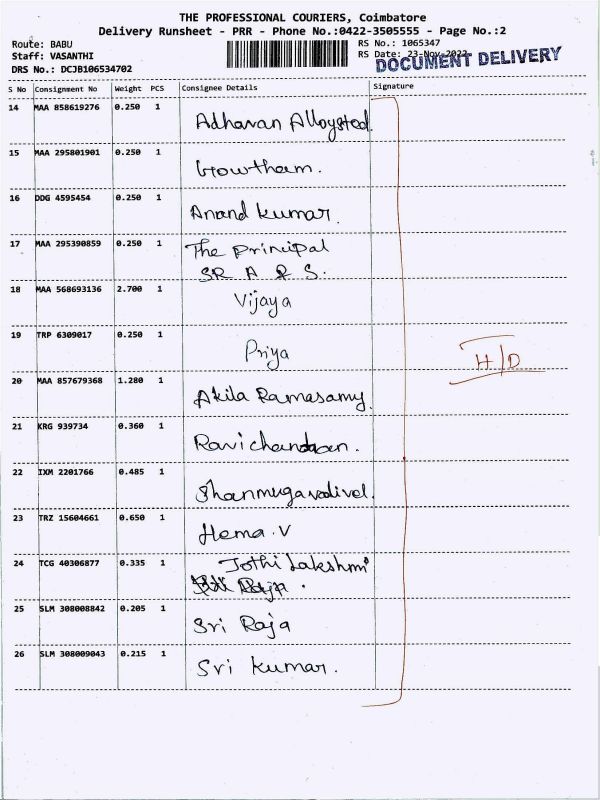 THE PROFESSIONAL COURIERS, Coimbatore
Delivery Runsheet - PRR - Phone No.:0422-3505555 - Page No.:2
Route: BABU
RS No.: 1065347
Staff: VASANTHI
RS Date: 23-Nov-2022
DOCUMENT DELIVERY
DRS No.: DCJB106534702
S No Consignment No Weight PCS Consignee Details Signature
14 MAA 858619276 0.250 1 Adhavan
15 MAA 295801901 0.250 1 Gowtham.
16 DDG 4595454 0.250 1 Anand kumar.
17 MAA 295390859 0.250 1 The principal
SR A R S.
18 MAA 568693136 2.700 1 Vijaya
19 TRP 6309017 0.250 1 Priya
H/D
20 MAA 857679368 1.280 1 Akila Ramasamy.
21 KRG 939734 0.360 1 Ravichandran.
22 IXM 2201766 0.485 1 Shanmugavadivel.
23 TRZ 15604661 0.650 1 Hema.V
24 TCG 40306877 0.335 1 Jothi Lakshmi
25 SLM 308008842 0.205 1 Sri Raja
26 SLM 308009043 0.215 1 Sri kumar.